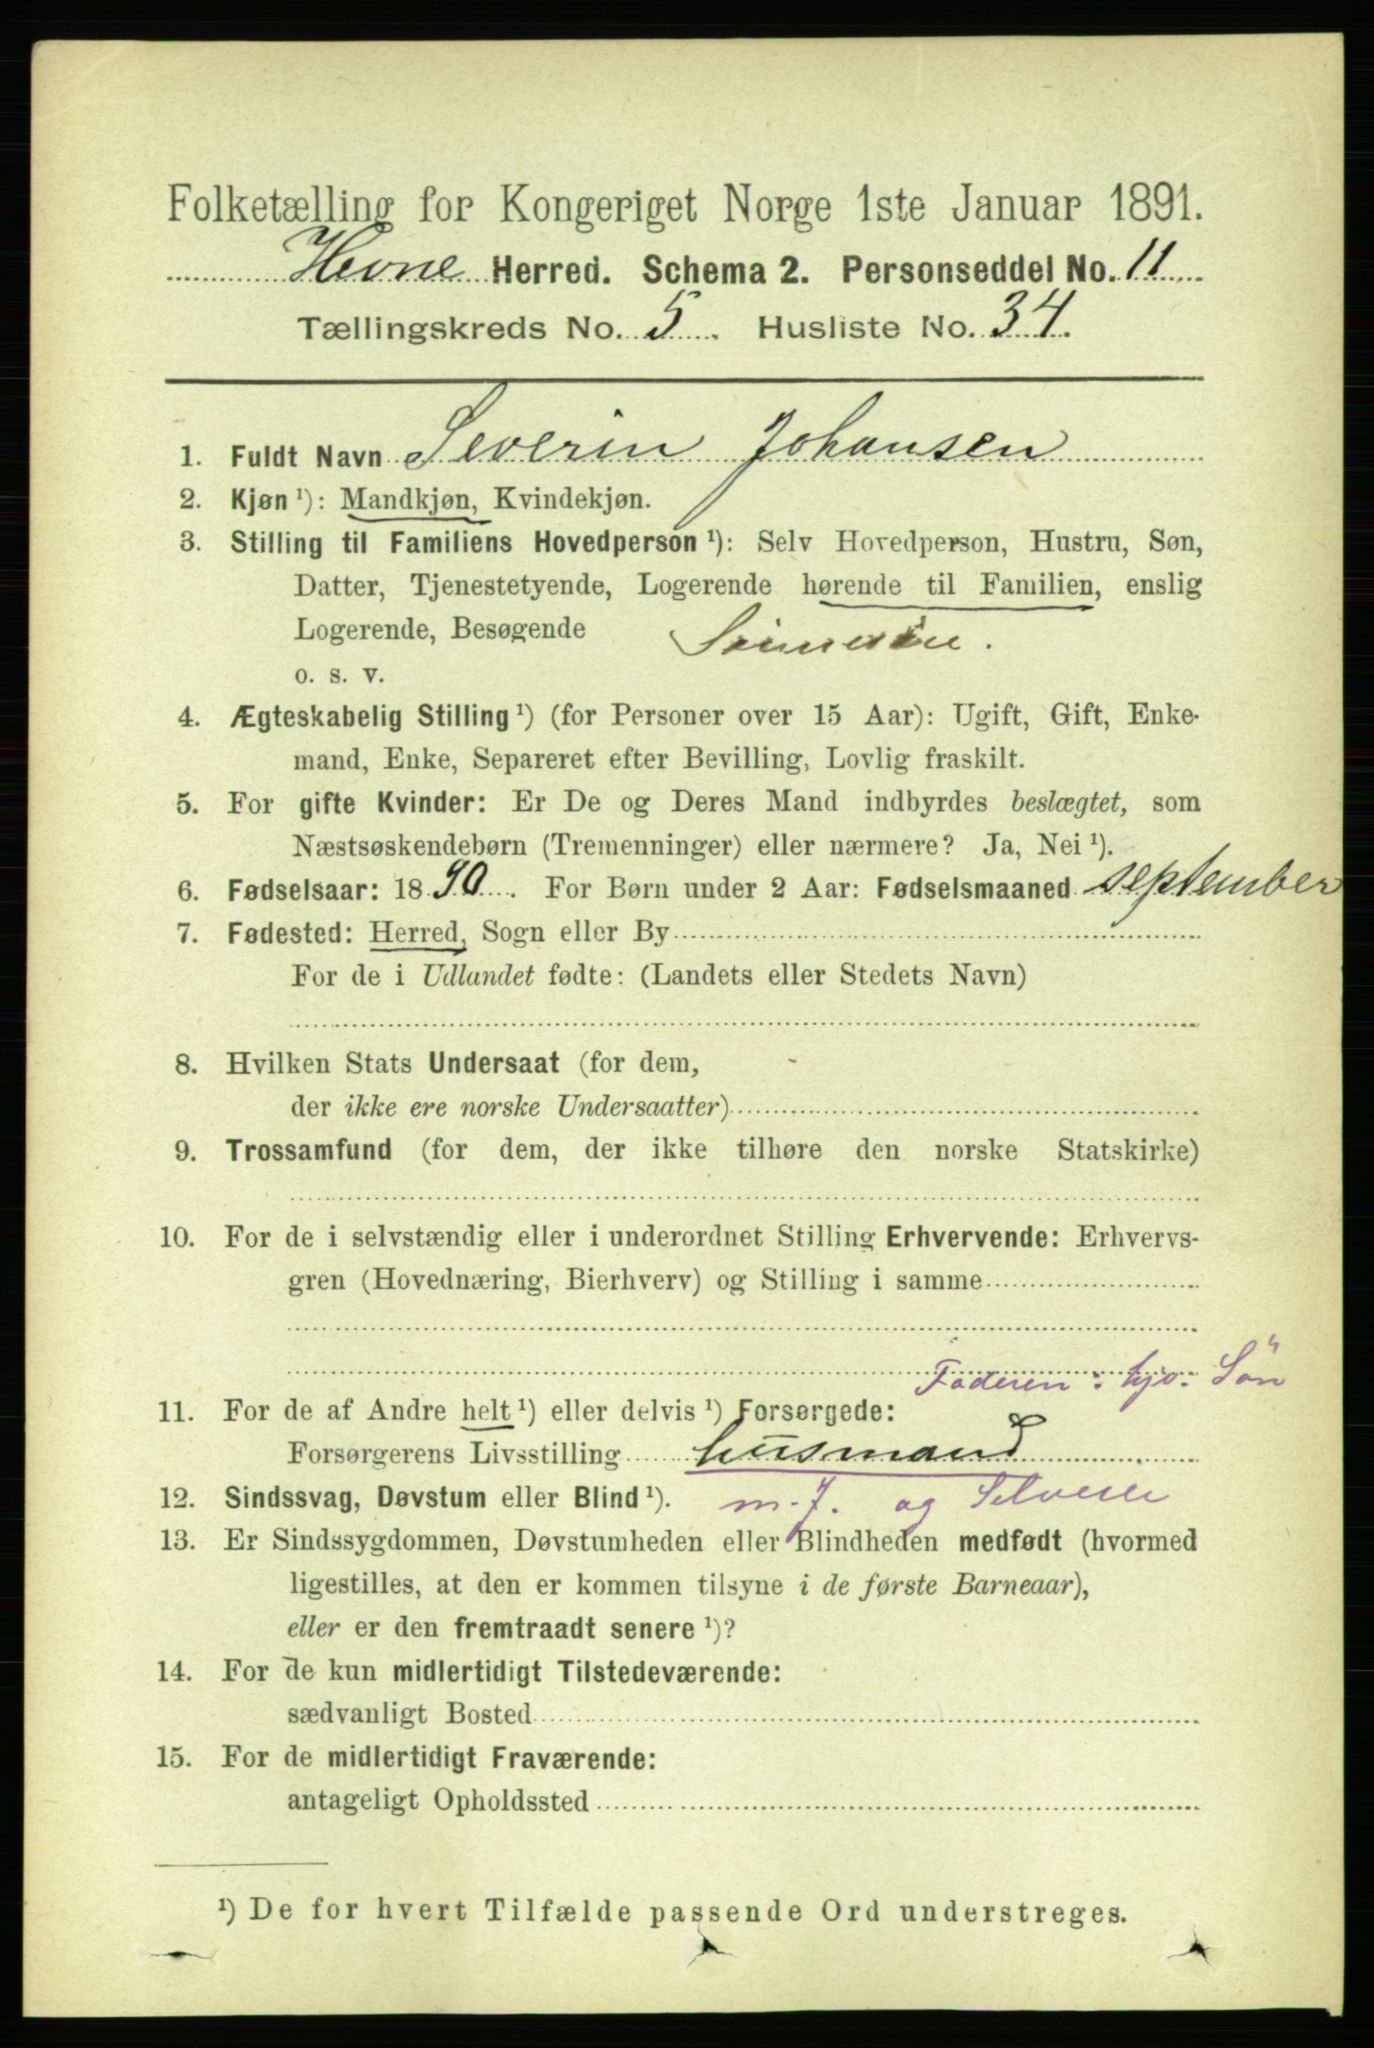 Folketælling for Kongeriget Norge 1ste Januar 1891.
Hevne Herred. Schema 2. Personseddel No. 11
Tællingskreds No. 5. Husliste No. 34.
1. Fuldt Navn Severin Johansen
2. Kjøn ¹): Mandkjøn, Kvindekjøn.
3. Stilling til Familiens Hovedperson ¹): Selv Hovedperson, Hustru, Søn,
Datter, Tjenestetyende, Logerende hørende til Familien, enslig
Logerende, Besøgende
o. s. v.
4. Ægteskabelig Stilling ¹) (for Personer over 15 Aar): Ugift, Gift, Enke-
mand, Enke, Separeret efter Bevilling, Lovlig fraskilt.
5. For gifte Kvinder: Er De og Deres Mand indbyrdes beslægtet, som
Næstsøskendebørn (Tremenninger) eller nærmere? Ja, Nei ¹).
6. Fødselsaar: 1890. For Børn under 2 Aar: Fødselsmaaned september
7. Fødested: Herred, Sogn eller By
For de i Udlandet fødte: (Landets eller Stedets Navn)
8. Hvilken Stats Undersaat (for dem,
der ikke ere norske Undersaatter)
9. Trossamfund (for dem, der ikke tilhøre den norske Statskirke)
10. For de i selvstændig eller i underordnet Stilling Erhvervende: Erhvervs-
gren (Hovednæring, Bierhverv) og Stilling i samme
Faderen: hjv. Søn
11. For de af Andre helt ¹) eller delvis ¹) Forsørgede:
Forsørgerens Livsstilling husmand
12. Sindssvag, Døvstum eller Blind ¹). m. J. og
13. Er Sindssygdommen, Døvstumheden eller Blindheden medfødt (hvormed
ligestilles, at den er kommen tilsyne i de første Barneaar),
eller er den fremtraadt senere ¹)?
14. For de kun midlertidigt Tilstedeværende:
sædvanligt Bosted
15. For de midlertidigt Fraværende:
antageligt Opholdssted
¹) De for hvert Tilfælde passende Ord understreges.